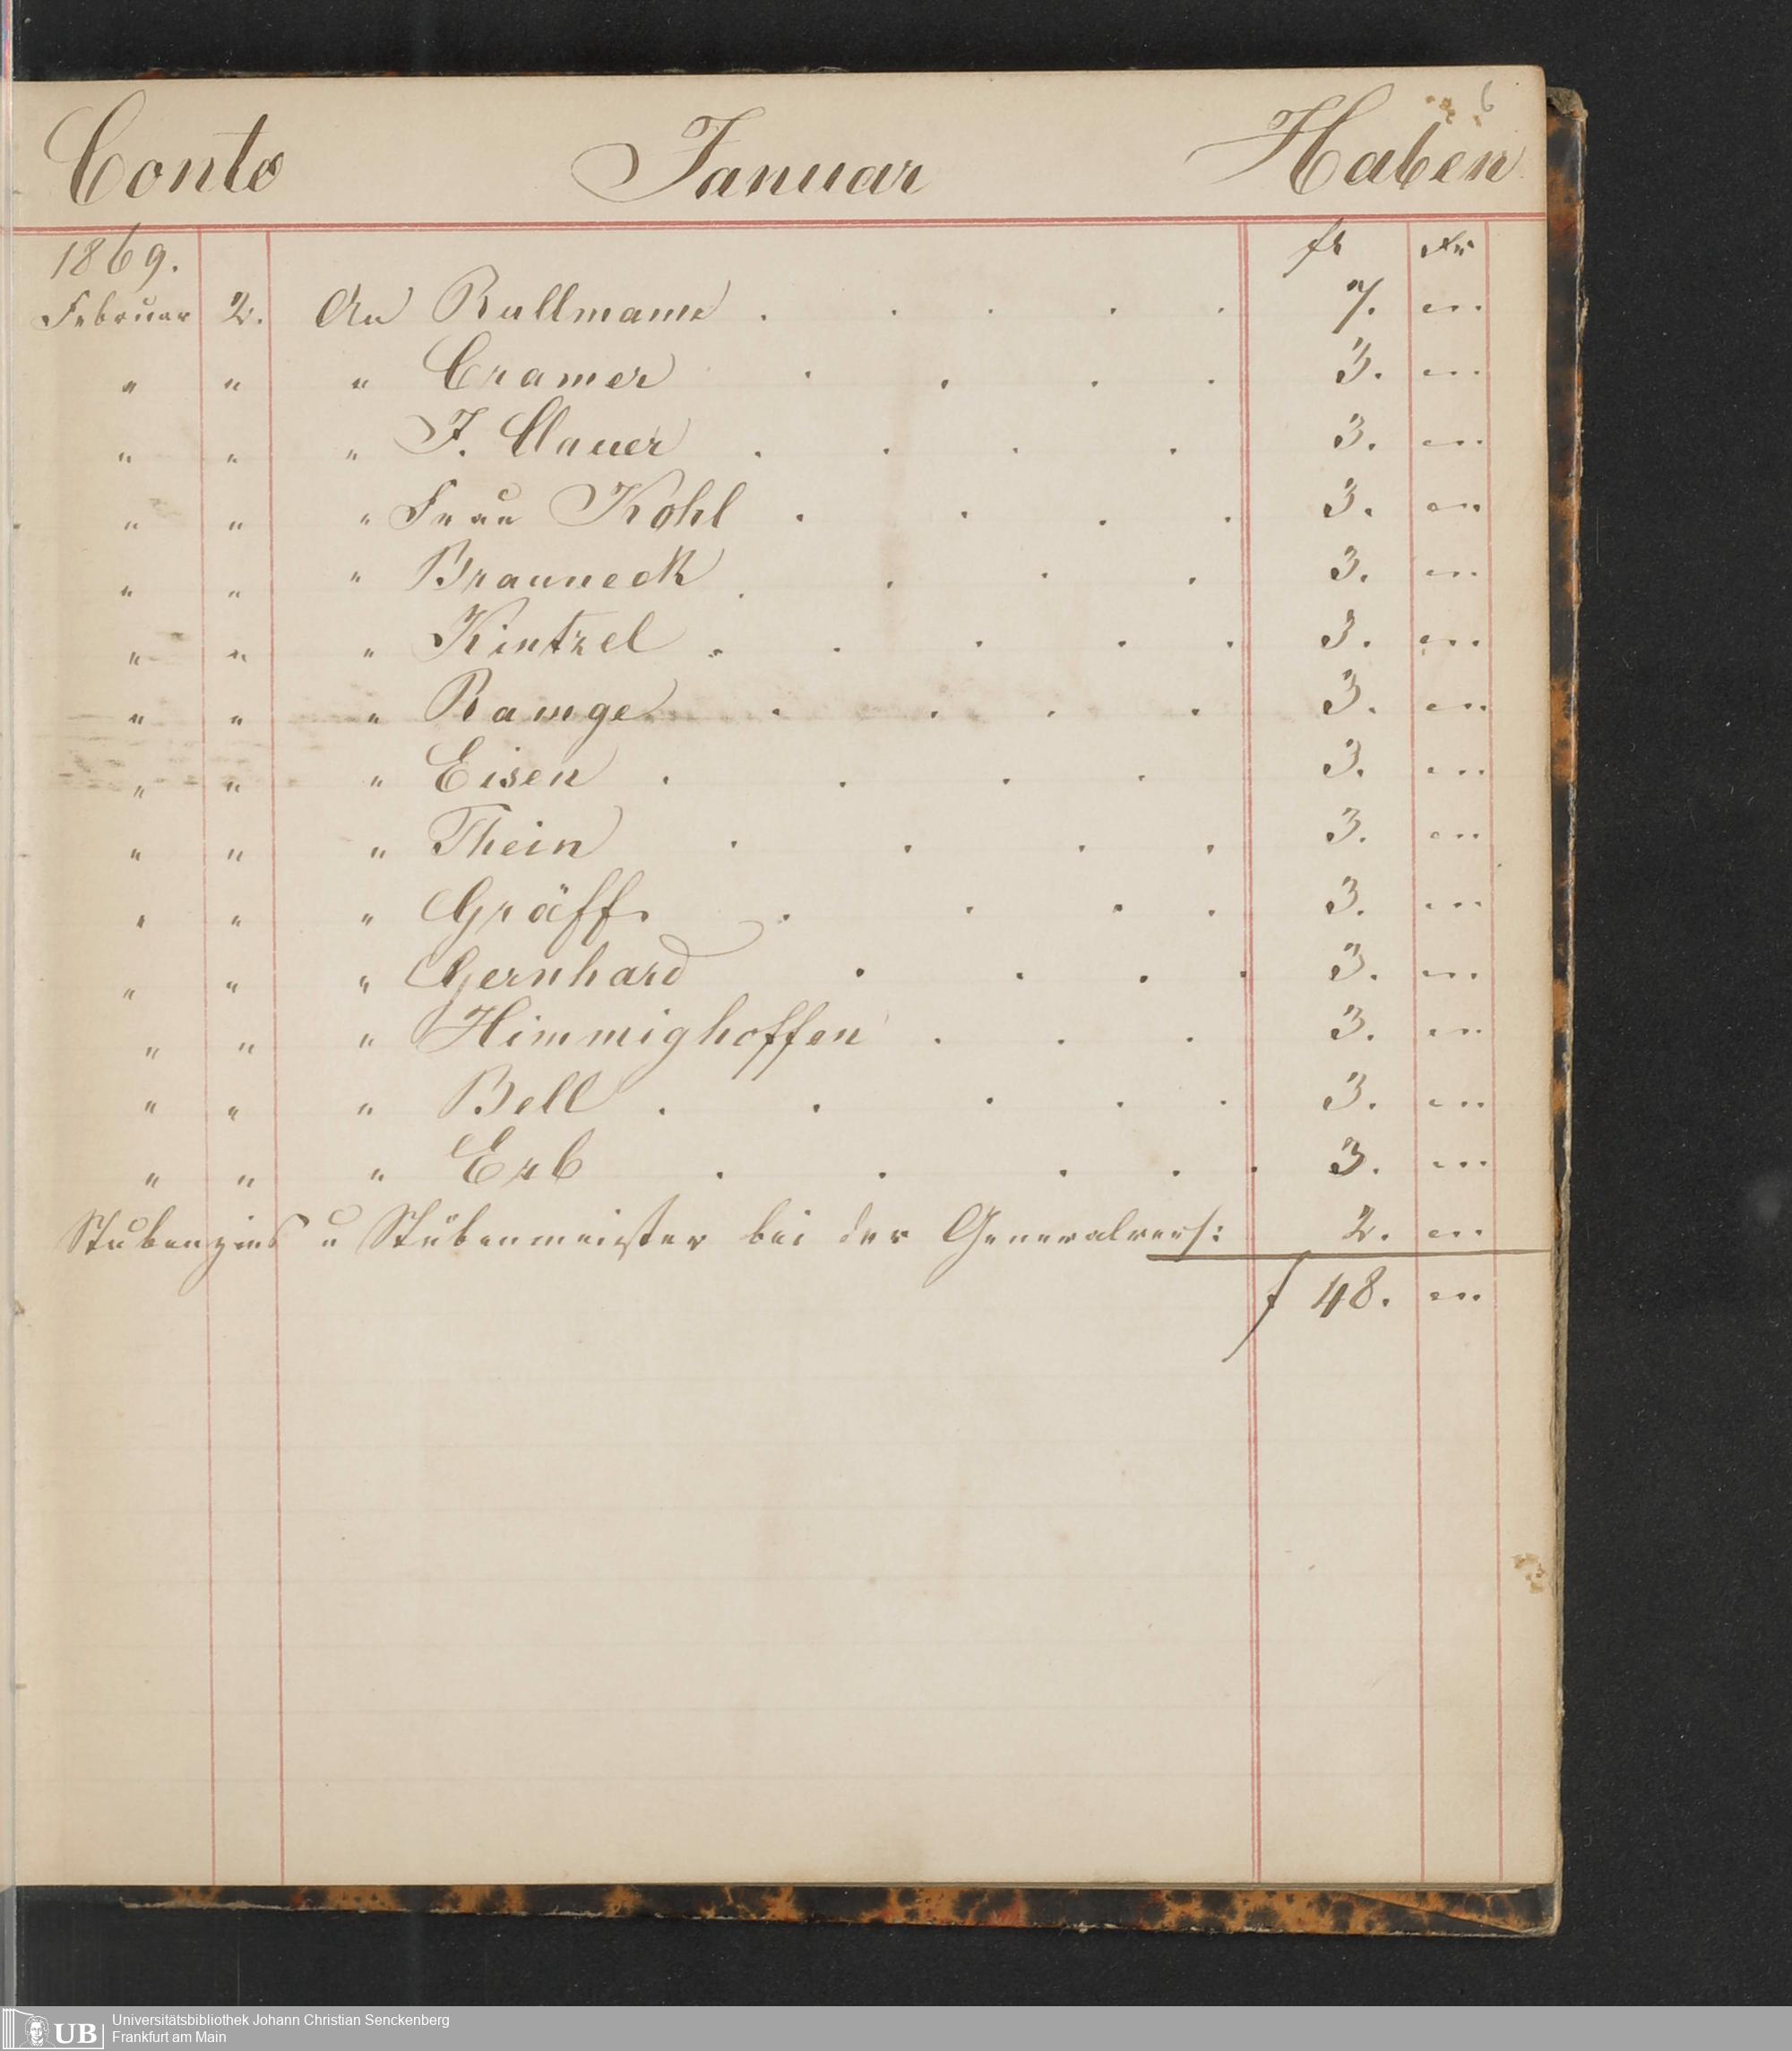 6
Conto Januar Haben
1869. fl Kr
Februar 2. An Rullmann . . . . . 7. „..
„ „ „ Cramer . . . . 3. „..
„ „ „ J. Clauer . . . . 3. „..
„ „ „ Frau Kohl . . . . 3. „..
„ „ „ Brauneck . . . . 3. „..
„ „ „ Kintzel . . . . . 3. „..
„ „ „ Ramge . . . . 3. „..
„ „ „ Eisen . . . . 3. „..
„ „ „ Thein . . . . 3. „..
„ „ „ Gräff . . . . 3. „..
„ „ „ Gernhard . . . . 3. „..
„ „ „ Himmighoffen . . . 3. „..
„ „ „ Bell . . . . . 3. „..
„ „ „ Erb . . . . . 3. „..
Stubenzins u Stubenmeister bei der Generalvers: 2. „..
f 48. „..
UB
Universitätsbibliothek Johann Christian Senckenberg
Frankfurt am Main